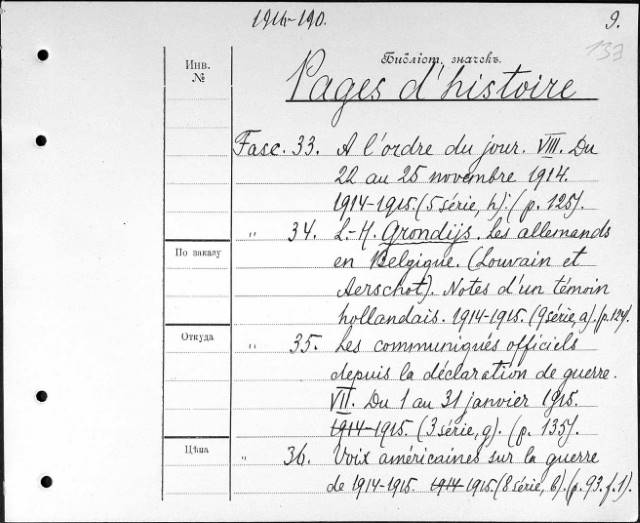 1916-190.
9.
137
Инв.
№
Библіот. значекъ.
Pages d'histoire
Fasc. 33. A l'ordre du jour. VIII. Du
22 au 25 novembre 1914.
1914-1915. (5 série, h). (p. 125).
" 34. L.-H. Grondijs. Les allemands
По заказу
en Belgique. (Louvain et
Aerschot). Notes d'un témoin
hollandais. 1914-1915. (9 série, a). (p. 124).
Откуда
" 35. Les communiqués officiels
depuis la déclaration de guerre.
VII. Du 1 au 31 janvier 1915.
1914-1915. (3 série, g). (p. 135).
Цѣна
" 36. Voix américaines sur la guerre
de 1914-1915. 1914-1915. (8 série, b). (p. 93. f. 1).